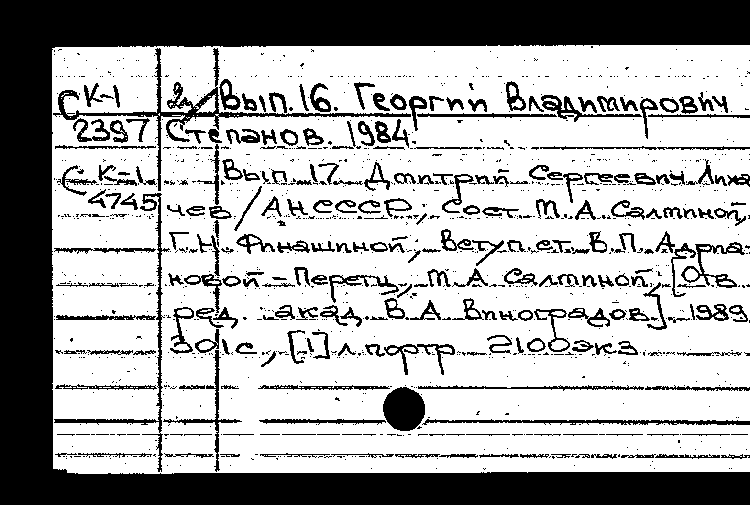 С К-1 2л/ Вып.16. Георгий Владимирович
2397 Степанов. 1984.
С К-1 Вып. 17 Дмитрий Сергеевич Лиха-
4745 чев / АН СССР; Сост М.А Салминой,
Г.Н. Финашиной; Вступ.ст. В.П. Адриа-
новой-Перетц, М.А Салминой; [Отв
ред. акад. В А Виноградов]. 1989
301с, [1] л портр 2100экз